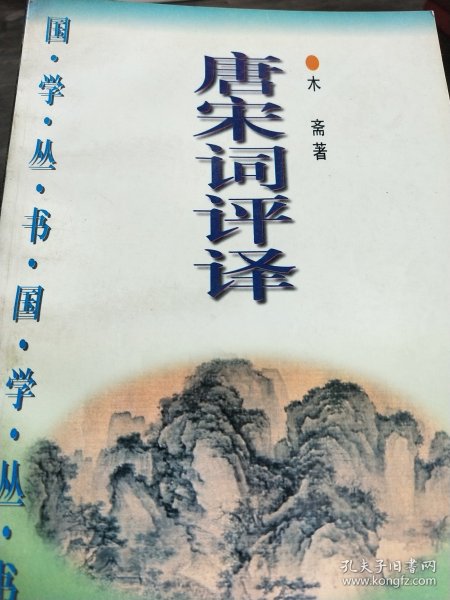 国·学·丛·书·国·学·丛·书
唐宋词评译
木 斋著
孔夫子旧书网
www.kongfz.com